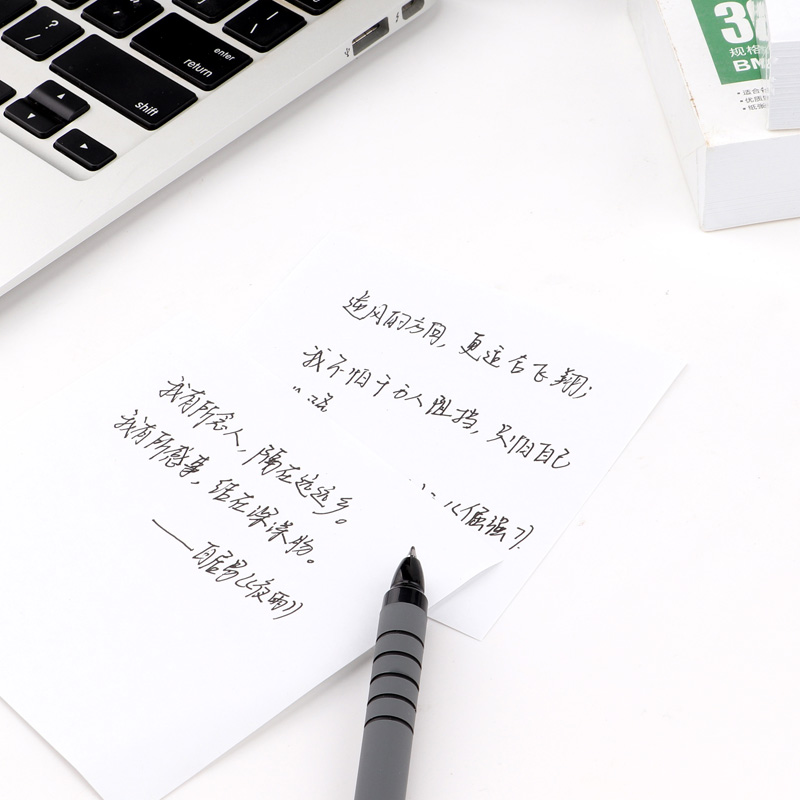 ?
/
enter
return
shift
规格
BM
逆风的方向，更适合飞翔；
我不怕千万人阻挡，只怕自己
《倔强》
我有所念人，隔在远远乡。
我有所感事，结在深深
——白居易《夜雨》